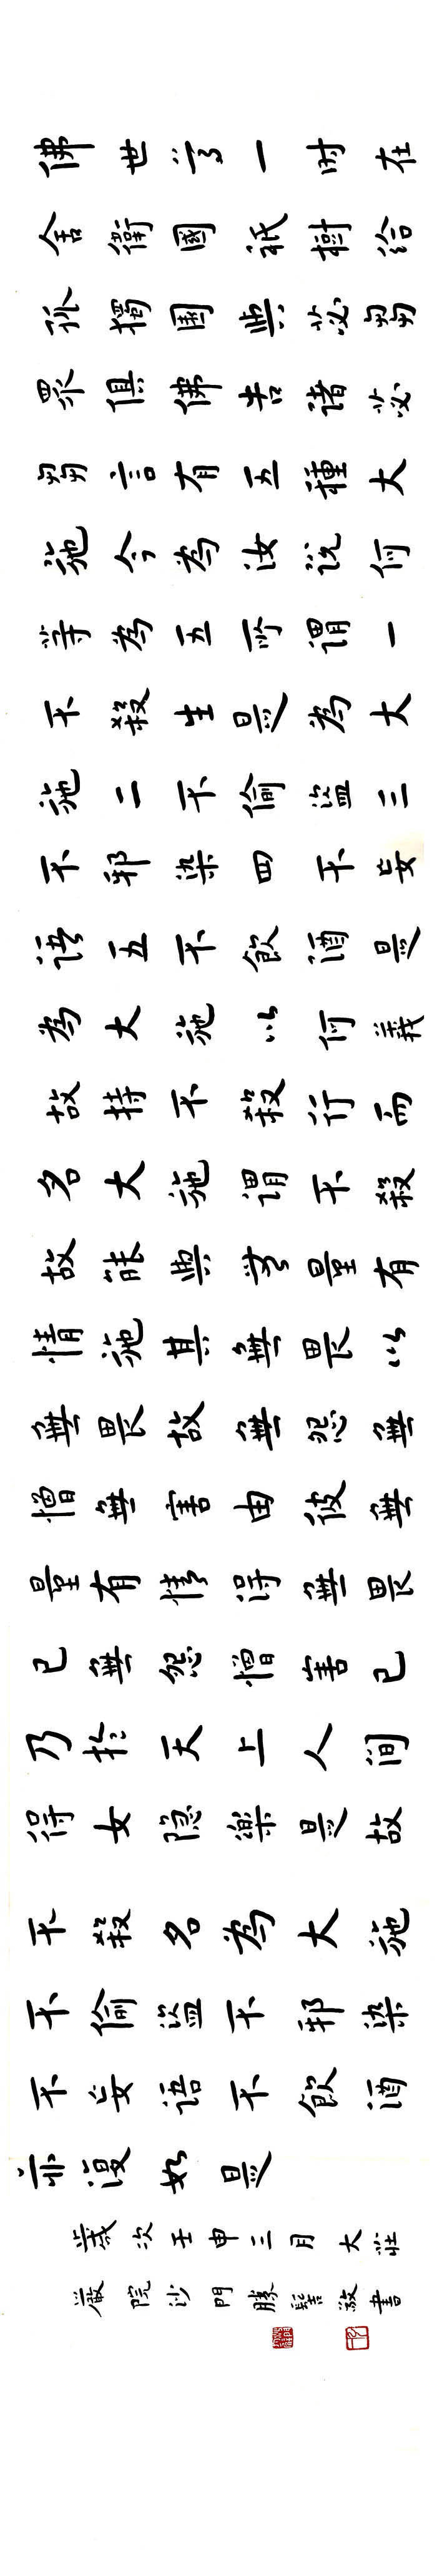 佛世尊一时在
舍衛國祇樹給
孤獨園與苾芻
眾俱佛告諸苾
芻言有五種大
施今為汝說何
等為五所謂一
不殺生是為大
施二不偷盜三
不邪染四不妄
語五不飲酒是
為大施以何義
故持不殺行而
名大施謂不殺
故能與無量有
情施其無畏以
無畏故無怨無
憎無害由彼無
量有情得無畏
已無怨憎害已
乃於天上人間
得安隱樂是故
不殺名為大施
不偷盜不邪染
不妄語不飲酒
亦復如是
歲次壬申三月大莊
嚴院沙門勝髻敬書